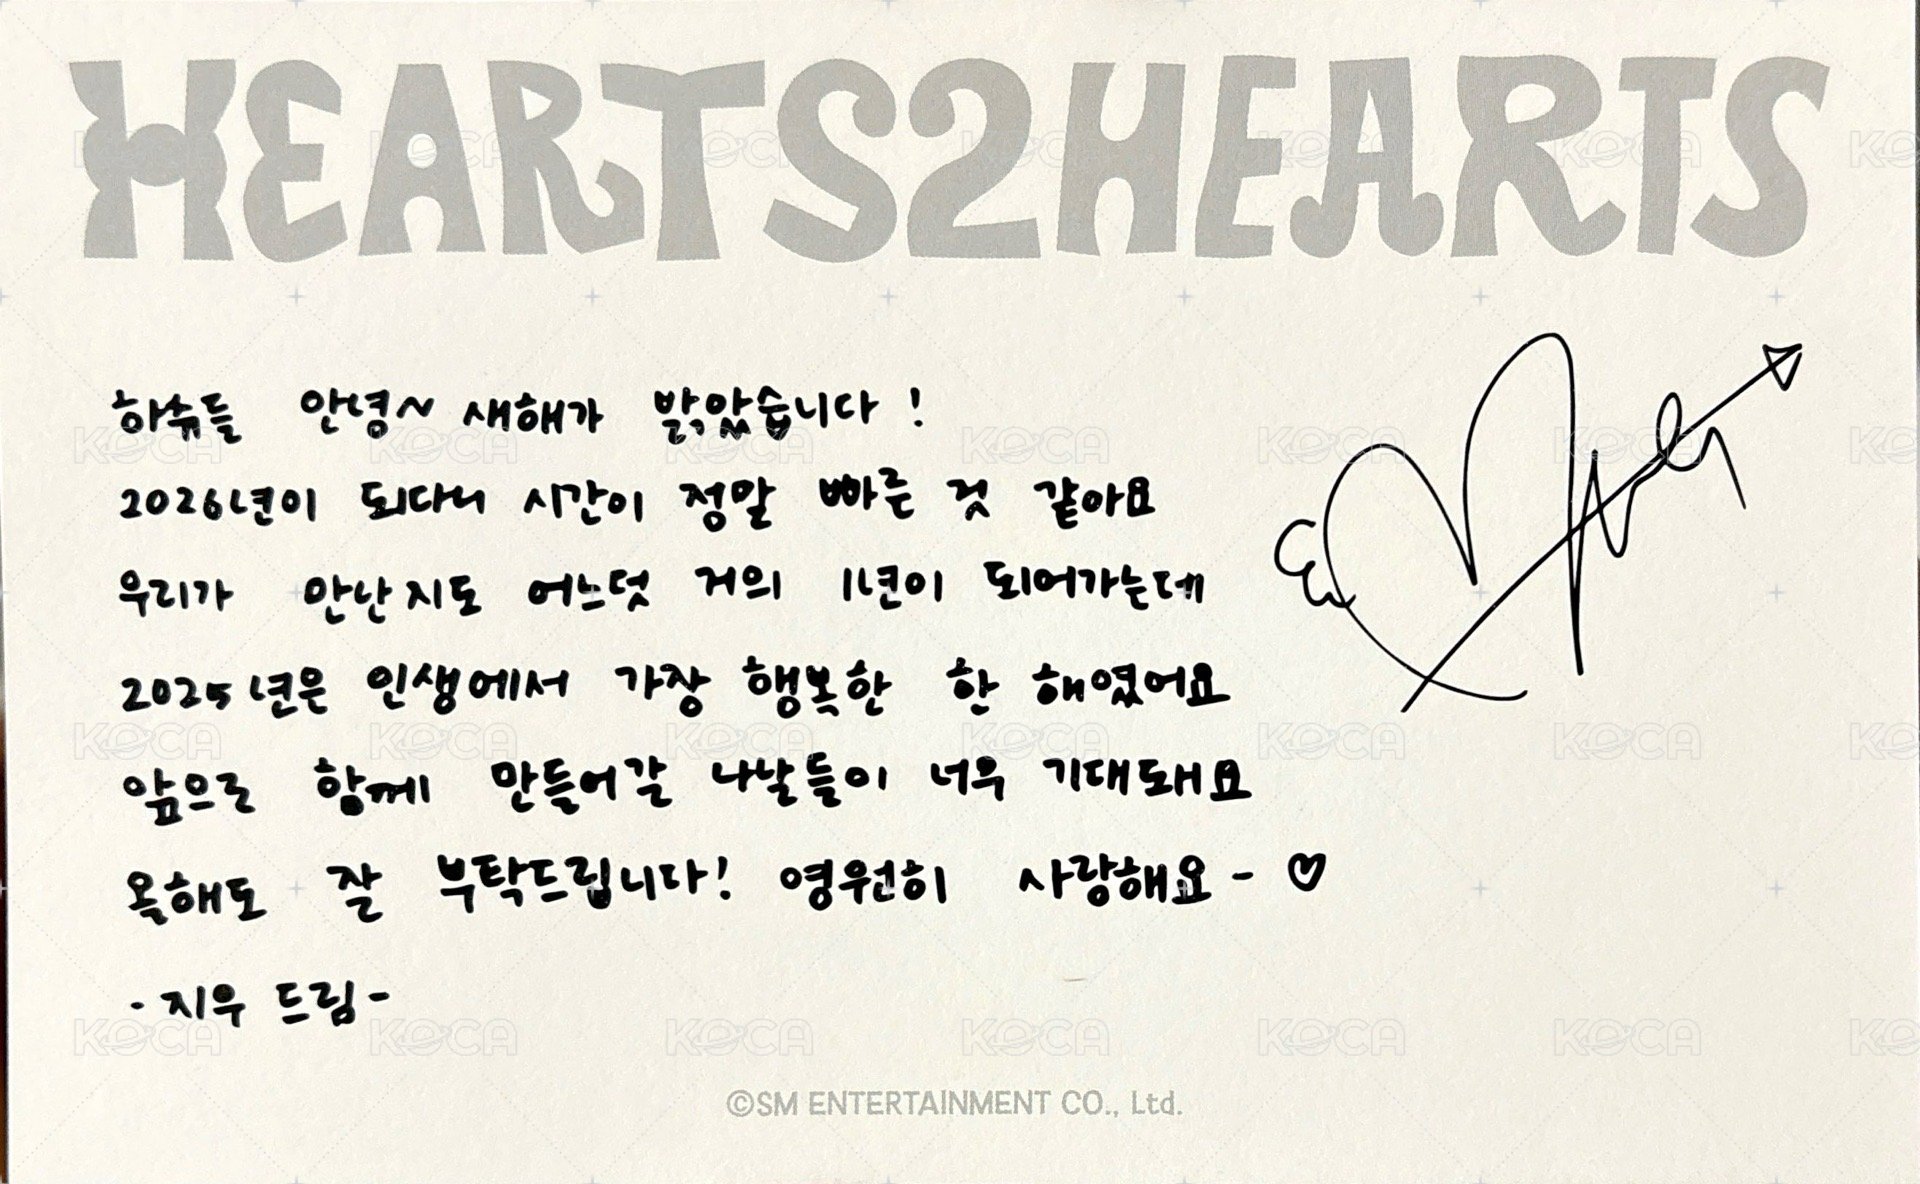 HEARTS2HEARTS
하츄들 안녕~ 새해가 밝았습니다!
2026년이 되다니 시간이 정말 빠른 것 같아요
우리가 만난지도 어느덧 거의 1년이 되어가는데
2025년은 인생에서 가장 행복한 한 해였어요
앞으로 함께 만들어갈 나날들이 너무 기대돼요
올해도 잘 부탁드립니다! 영원히 사랑해요- ♡
- 지우 드림 -
©SM ENTERTAINMENT CO., Ltd.
KOCA